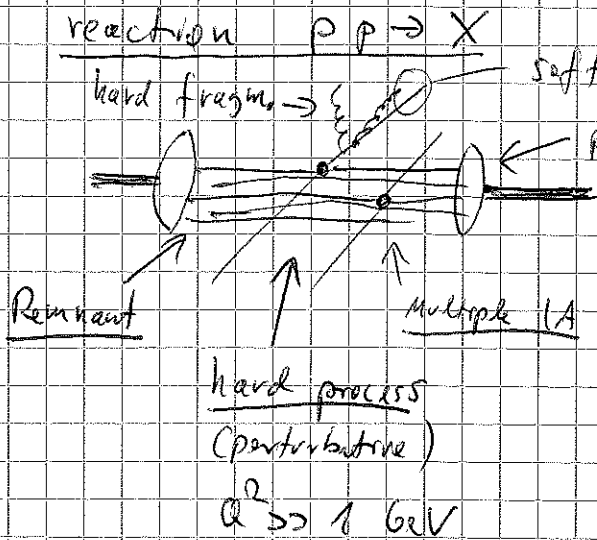 reaction p p → X
hard fragm. →
Remnant
Multiple IA
hard process
(perturbative)
Q² >> 1 GeV